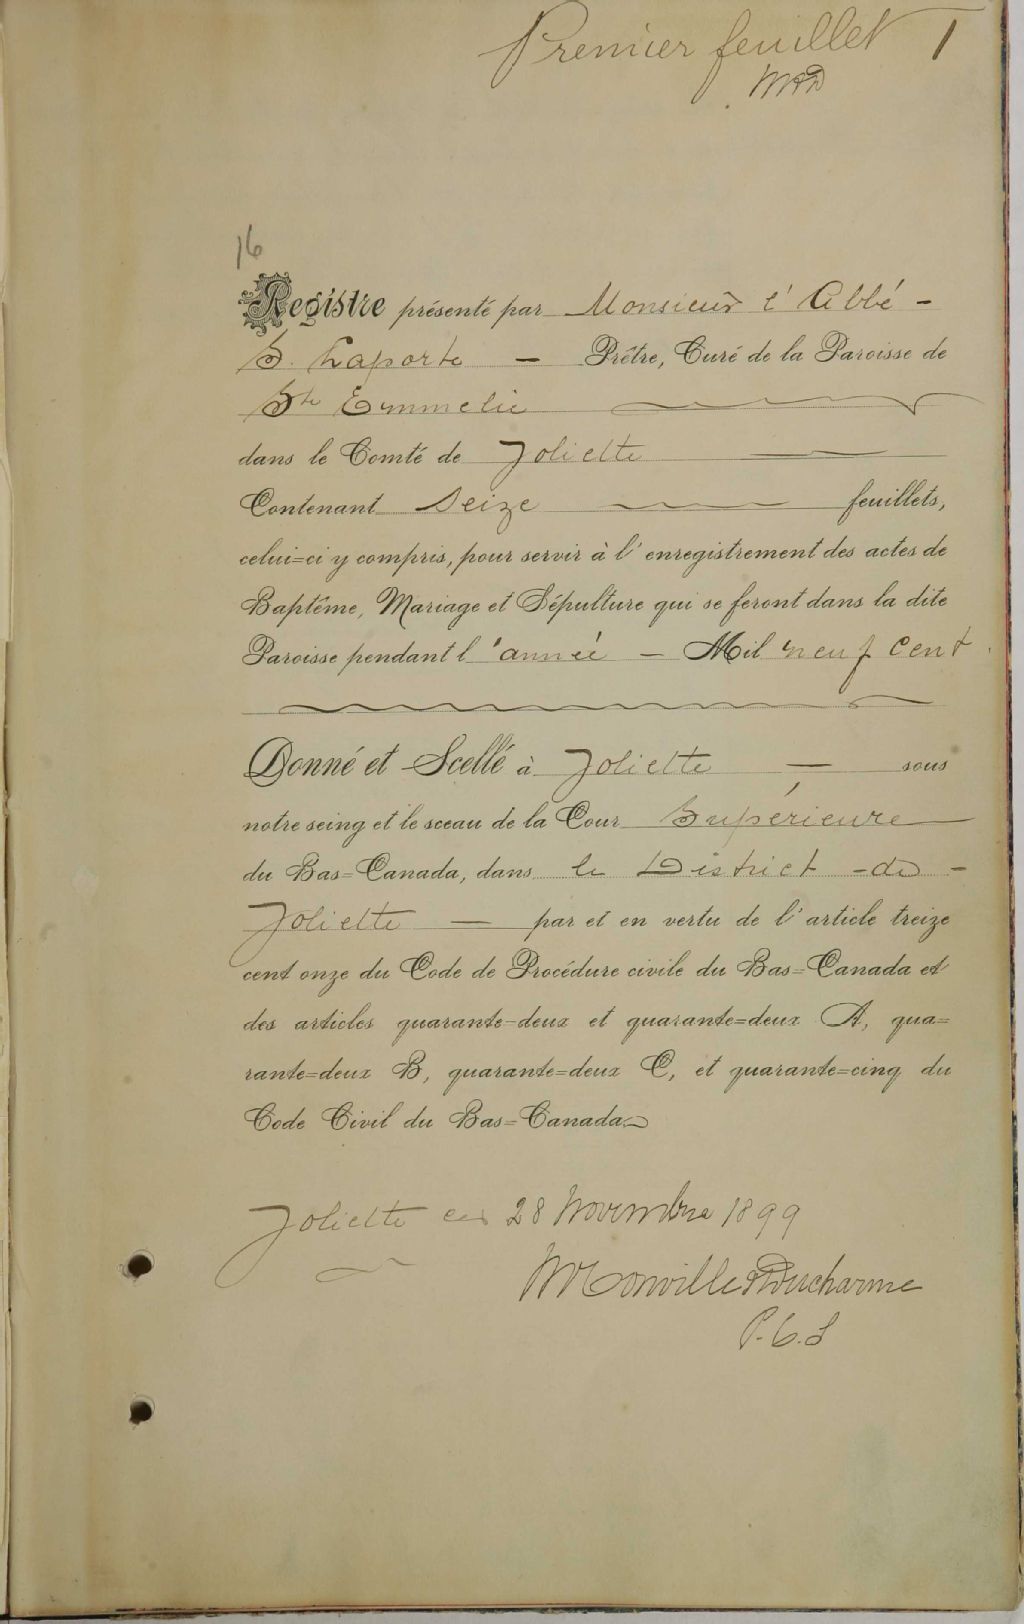 Premier feuillet 1
16
Registre présenté par Monsieur l'Abbé -
S. Laporte - Prêtre, Curé de la Paroisse de
Ste Emmelie
dans le Comté de Joliette
Contenant Seize feuillets,
celui=ci y compris, pour servir à l'enregistrement des actes de
Baptême, Mariage et Sépulture qui se feront dans la dite
Paroisse pendant l'année - Mil neuf cent
Donné et Scellé à Joliette - sous
notre seing et le sceau de la Cour Supérieure
du Bas=Canada, dans le District -de -
Joliette - par et en vertu de l'article treize
cent onze du Code de Procédure civile du Bas=Canada et
des articles quarante=deux et quarante=deux A, qua=
rante=deux B, quarante=deux C, et quarante=cinq du
Code Civil du Bas=Canada.
Joliette ce 28 Novembre 1899
Ducharme
P.C.S